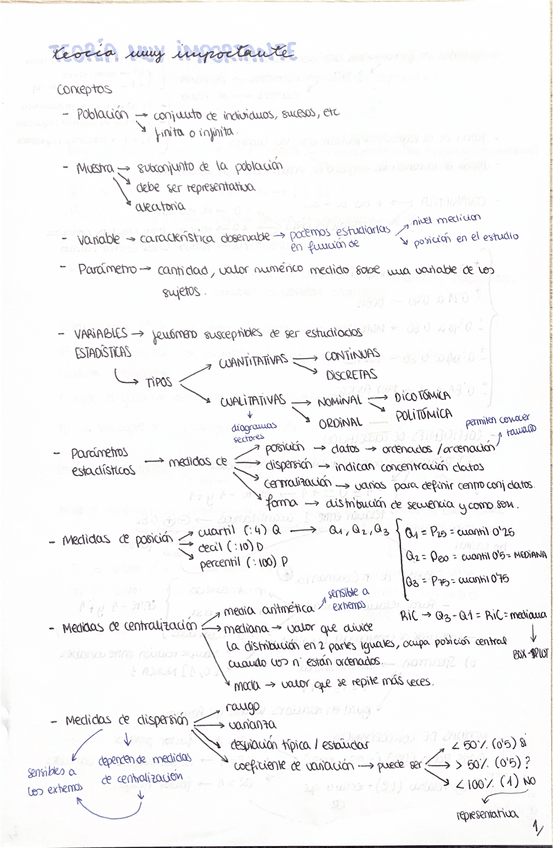 teoría muy importante
Conceptos
- Población → conjunto de individuos, sucesos, etc
↘ finita o infinita
- Muestra → subconjunto de la población
↘ debe ser representativa
↘ aleatoria
- Variable → característica observable → podemos estudiarlas en función de
nivel medición
posición en el estudio
- Parámetro → cantidad, valor numérico medido sobre una variable de los
sujetos.
- VARIABLES → fenómeno susceptibles de ser estudiados
ESTADÍSTICAS
TIPOS
CUANTITATIVAS → CONTINUAS
→ DISCRETAS
CUALITATIVAS → NOMINAL → DICOTÓMICA
→ POLITÓMICA
→ ORDINAL
diagramas
sectores
permiten conocer
tamaño
- Parámetros
estadísticos → medidas de
posición → datos → ordenados / ordenación
dispersión → indican concentración datos
centralización → varias para definir centro conj datos.
forma → distribución de secuencia y como son.
- Medidas de posición
cuartil (:4) Q → Q1, Q2, Q3
decil (:10) D
percentil (:100) P
Q1 = P25 = cuantil 0'25
Q2 = P50 = cuantil 0'5 = MEDIANA
Q3 = P75 = cuantil 0'75
- Medidas de centralización
media aritmética
sensible a
extremos
mediana → valor que divide
la distribución en 2 partes iguales, ocupa posición central
cuando los nº están ordenados.
moda → valor que se repite más veces.
RiC → Q3 - Q1 = RiC = mediana
BOX-PLOT
- Medidas de dispersión
rango
varianza
desviación típica / estándar
coeficiente de variación → puede ser
< 50% (0'5) sí
> 50% (0'5) ?
< 100% (1) NO
representativa
sensibles a
los extremos
dependen de medidas
de centralización
1/